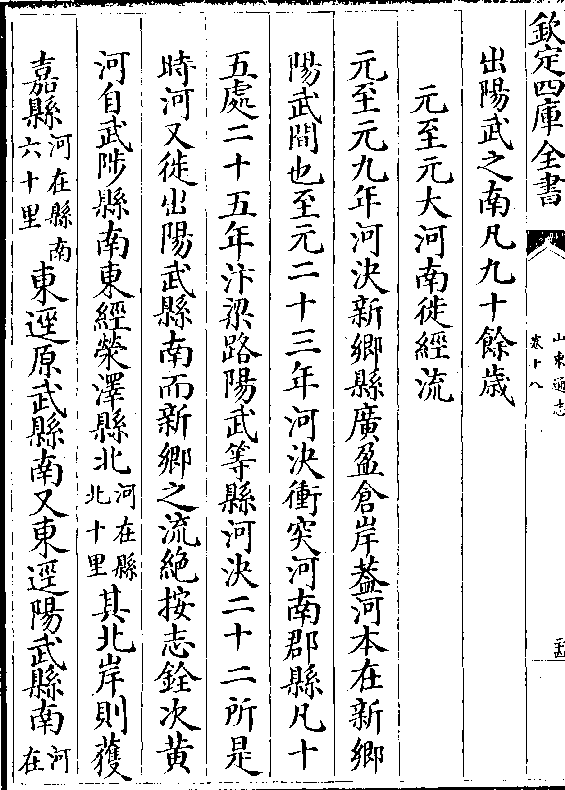 欽定四庫全書
山東通志
卷十八
出陽武之南凡九十餘歲
元至元大河南徙經流
元至元九年河決新鄉縣廣盈倉岸葢河本在新鄉
陽武間也至元二十三年河決衝突河南郡縣凡十
五處二十五年汴梁路陽武等縣河決二十二所是
時河又徙出陽武縣南而新鄉之流絶按志銓次黄
河自武陟縣南東經滎澤縣北河在縣北十里其北岸則獲
嘉縣河在縣南六十里東逕原武縣南又東逕陽武縣南河在